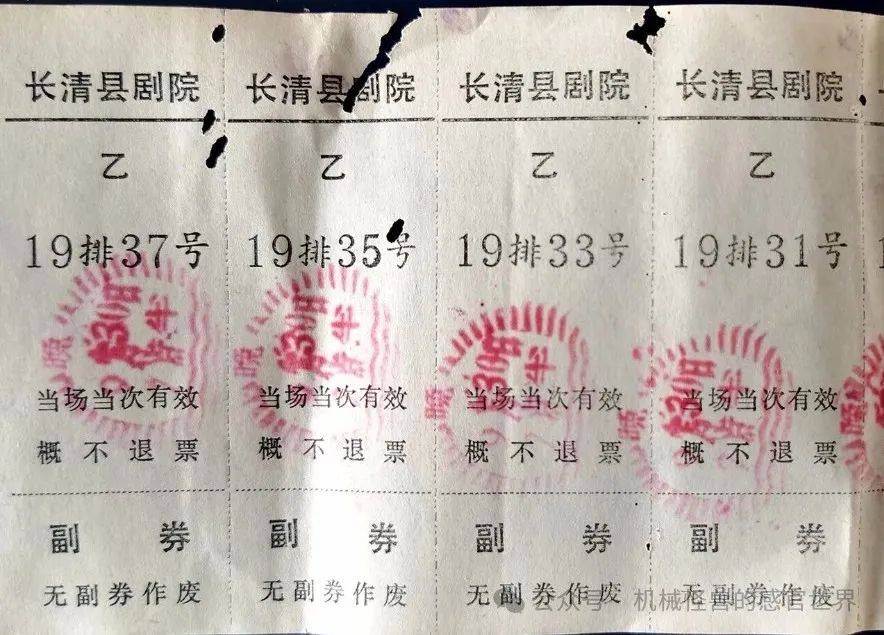 长清县剧院 长清县剧院 长清县剧院 长清县剧院
乙 乙 乙 乙
19排37号 19排35号 19排33号 19排31号
晚 30日 半 晚 30日 半 晚 30日 半 晚 30日 半
当场当次有效 当场当次有效 当场当次有效 当场当次有效
概不退票 概不退票 概不退票 概不退票
副 券 副 券 副 券 副 券
无副券作废 无副券作废 无副券作废 无副券作废
公众号 机械怪兽的感官世界